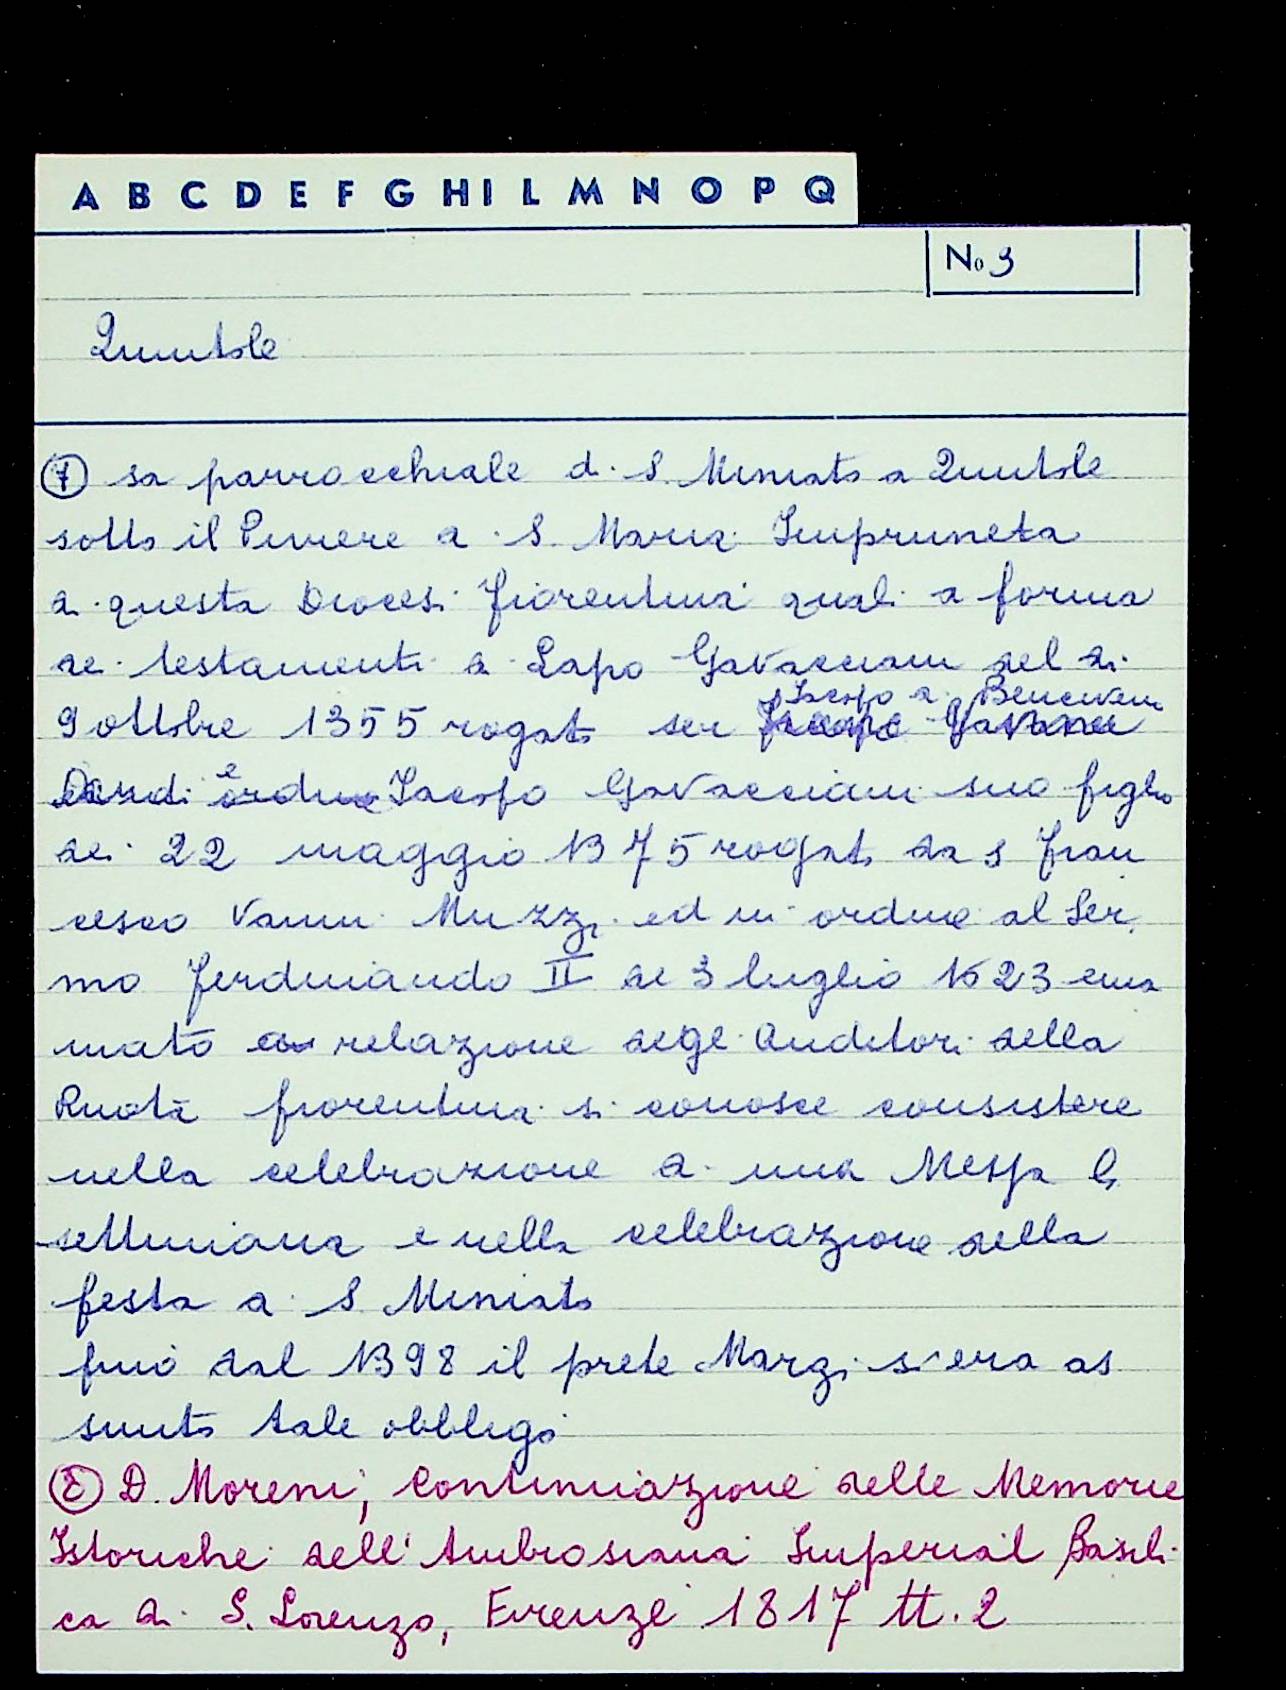 A B C D E F G H I L M N O P Q
No 9
Quintole
⑦ sa parrocchiale di S. Miniato a Quintole
sotto il Piviere di S. Maria Impruneta
di questa Diocesi fiorentina quali a forma
dei testamenti di Lapo Gavacciani del dì
Iacopo di Bencivenni
9 ottobre 1355 rogato ser
Dandi e Iacopo Gavacciani suo figlio
dei 22 maggio 1375 rogato da s Fran
cesco Vanni Muzzi ed in ordine al Ser.
mo Ferdinando II de 3 luglio 1623 ema
nato relazione degli Auditori della
Ruota fiorentina si conosce consistere
nella celebrazione di una Messa la
settimana e nella celebrazione della
festa di S. Miniato
fino dal 1398 il prete Marzi s'era as
sunto tale obbligo
⑧ D. Moreni, Continuazione delle Memorie
Istoriche dell'Ambrosiana Imperial Basili
ca di S. Lorenzo, Firenze 1817 tt. 2